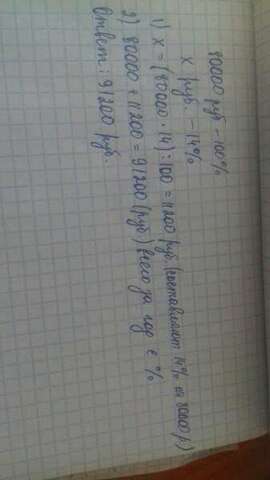 80000 руб - 100%
x руб. - 14%
1) x = (80000 · 14) : 100 = 11200 руб. (составляют 14% от 80000 р)
2) 80000 + 11200 = 91200 (руб) всего за год с %
Ответ: 91200 руб.